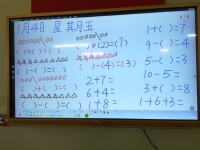 1月4日 星期五
( )+(2)=(7)
( )-( )=( )
( )-(4)=(3)
( )+( )=( )
( )-( )=( )
2+7=
6+4=
1+8=
1+( )=7
9-( )=4
5-( )=3
10-5=
3+( )=8
1+6+3=